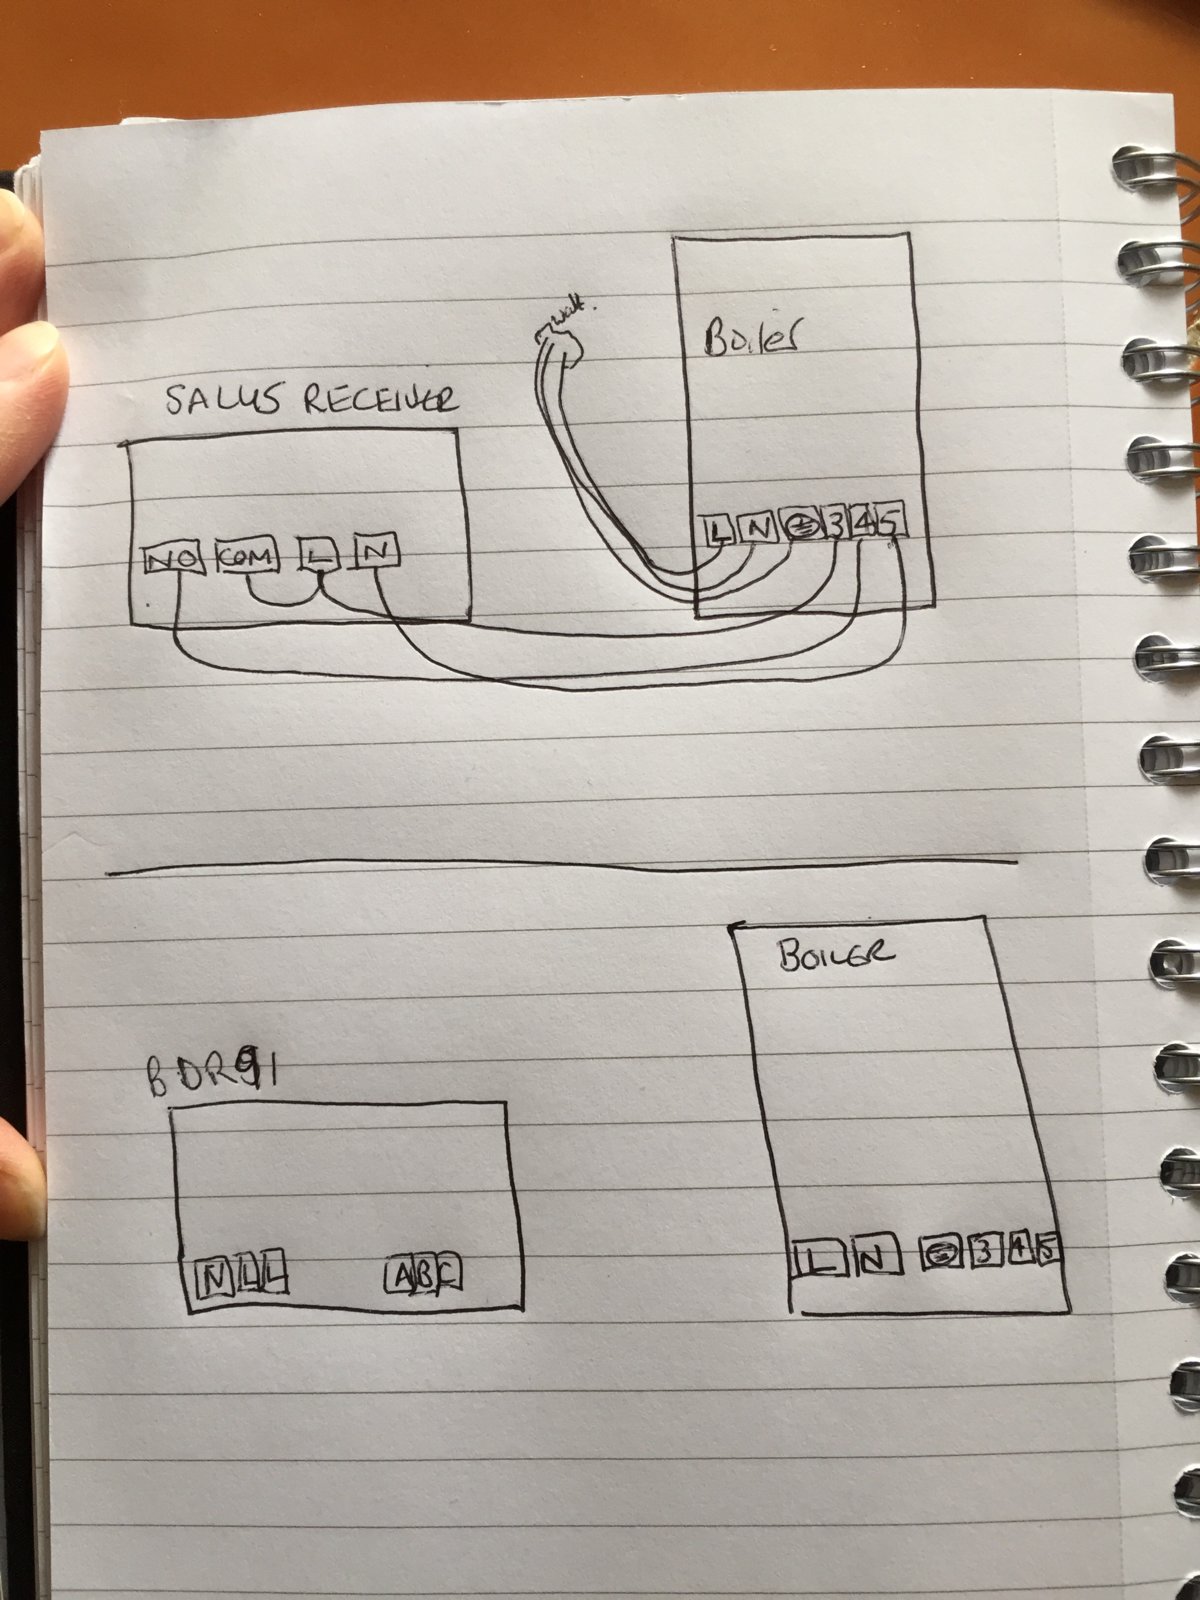 wall.
Boiler
SALUS RECEIVER
L N ⏚ 3 4 5
NO COM L N
BOILER
BDR91
L N ⏚ 3 4 5
N L L A B C